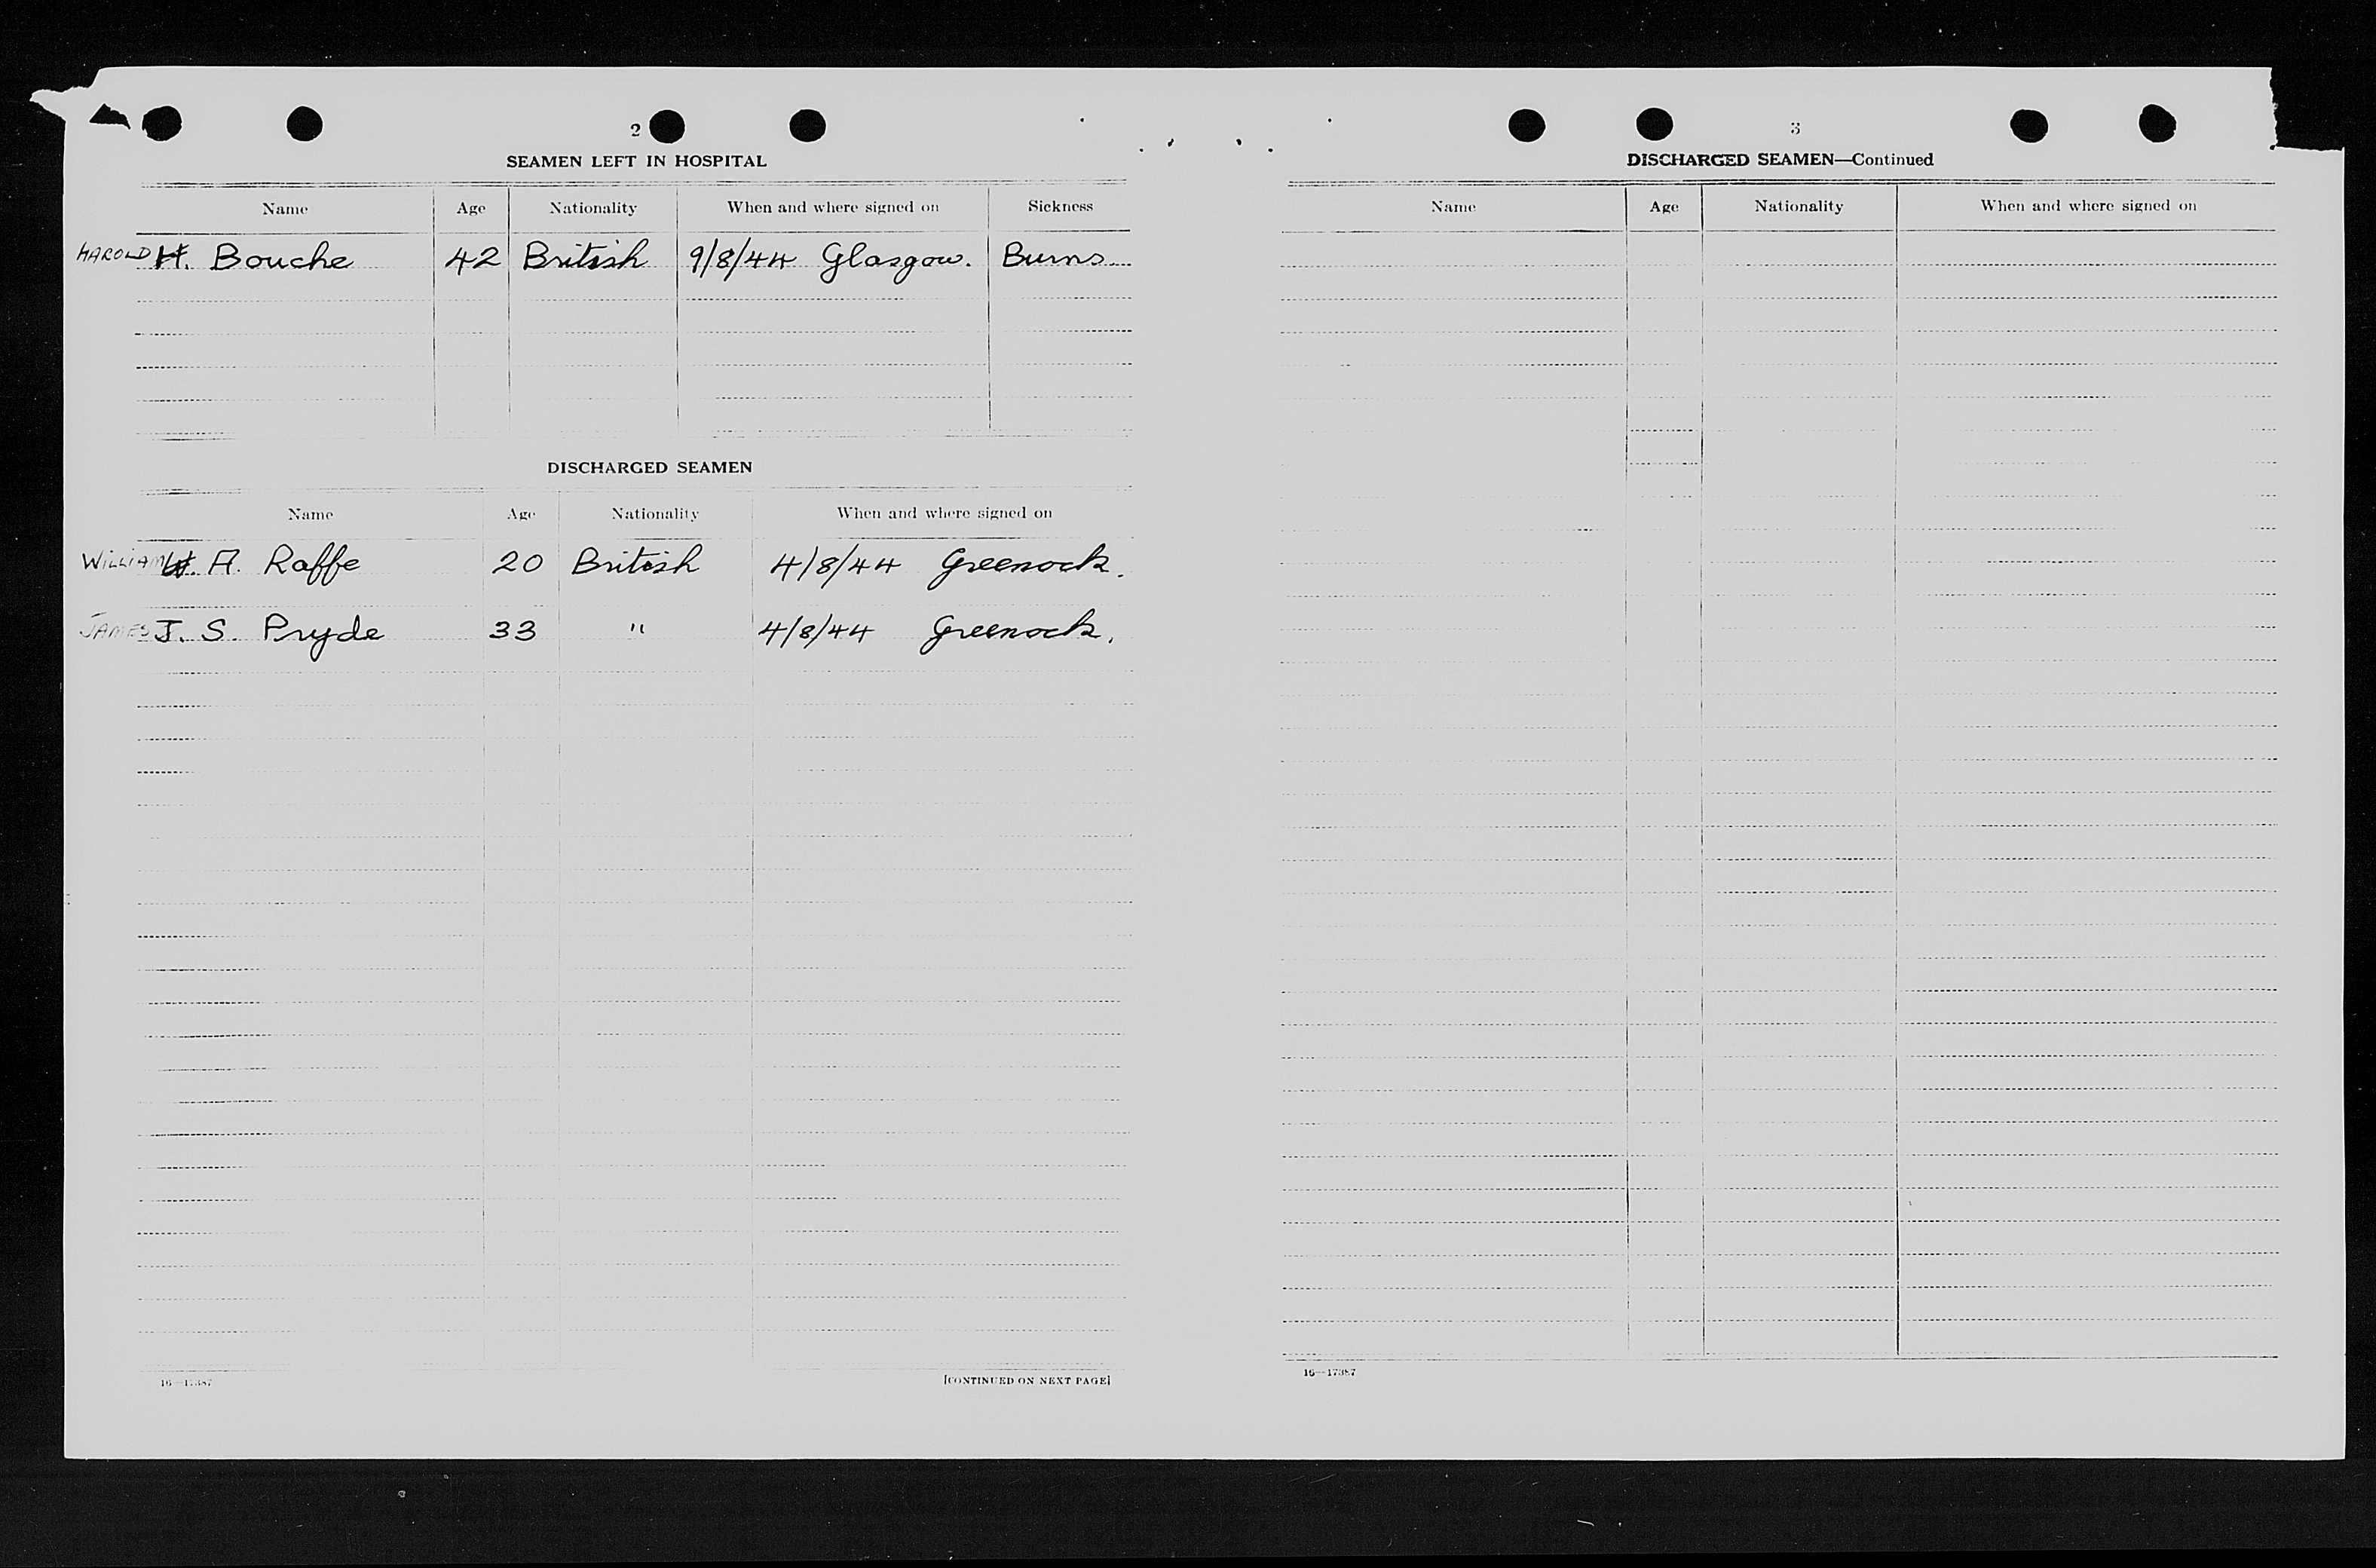 2
SEAMEN LEFT IN HOSPITAL
Name Age Nationality When and where signed on Sickness
HAROLD H. Bouche 42 British 9/8/44 Glasgow. Burns
DISCHARGED SEAMEN
Name Age Nationality When and where signed on
WILLIAM W. A. Raffe 20 British 4/8/44 Greenock.
JAMES J. S. Pryde 33 " 4/8/44 Greenock.
16—17387 [CONTINUED ON NEXT PAGE]
3
DISCHARGED SEAMEN—Continued
Name Age Nationality When and where signed on
16—17387